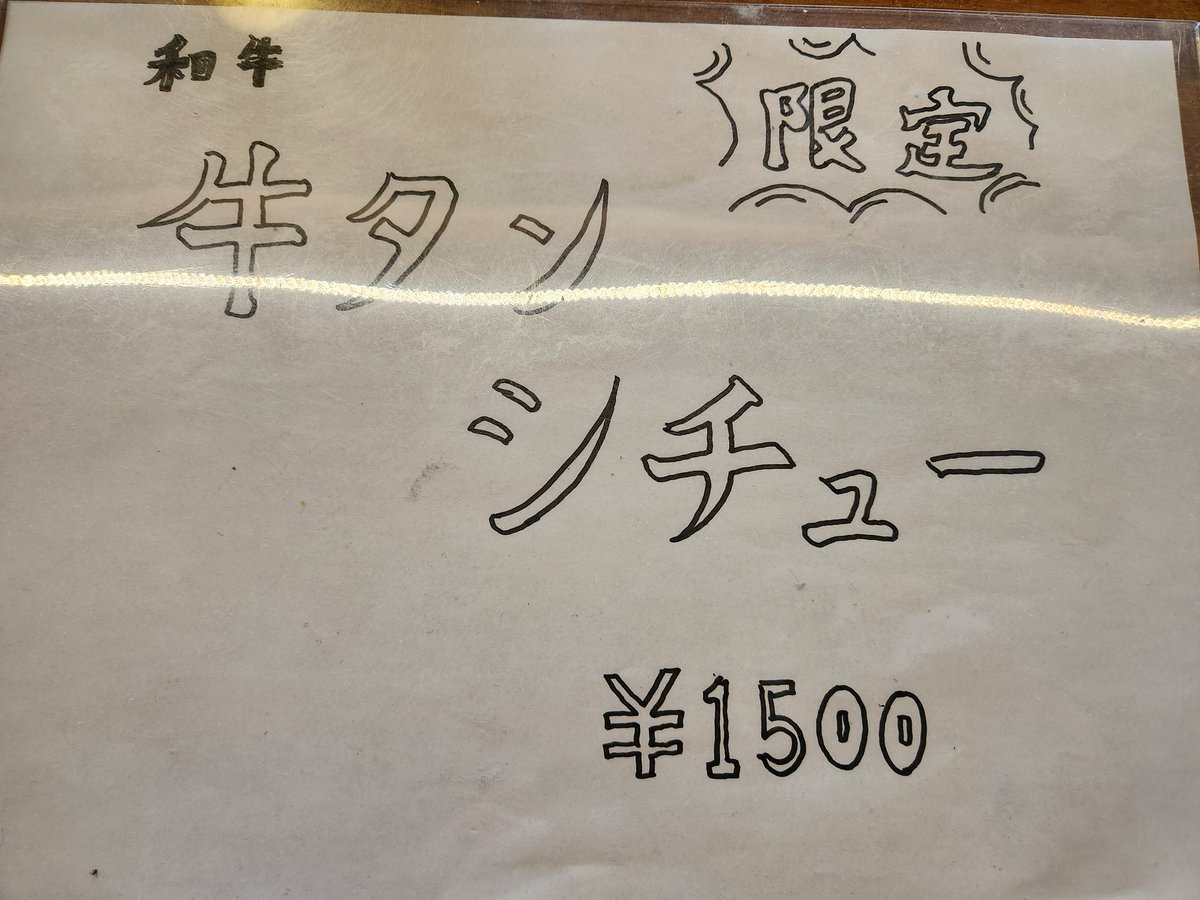 和牛
限定
牛タン
シチュー
¥1500